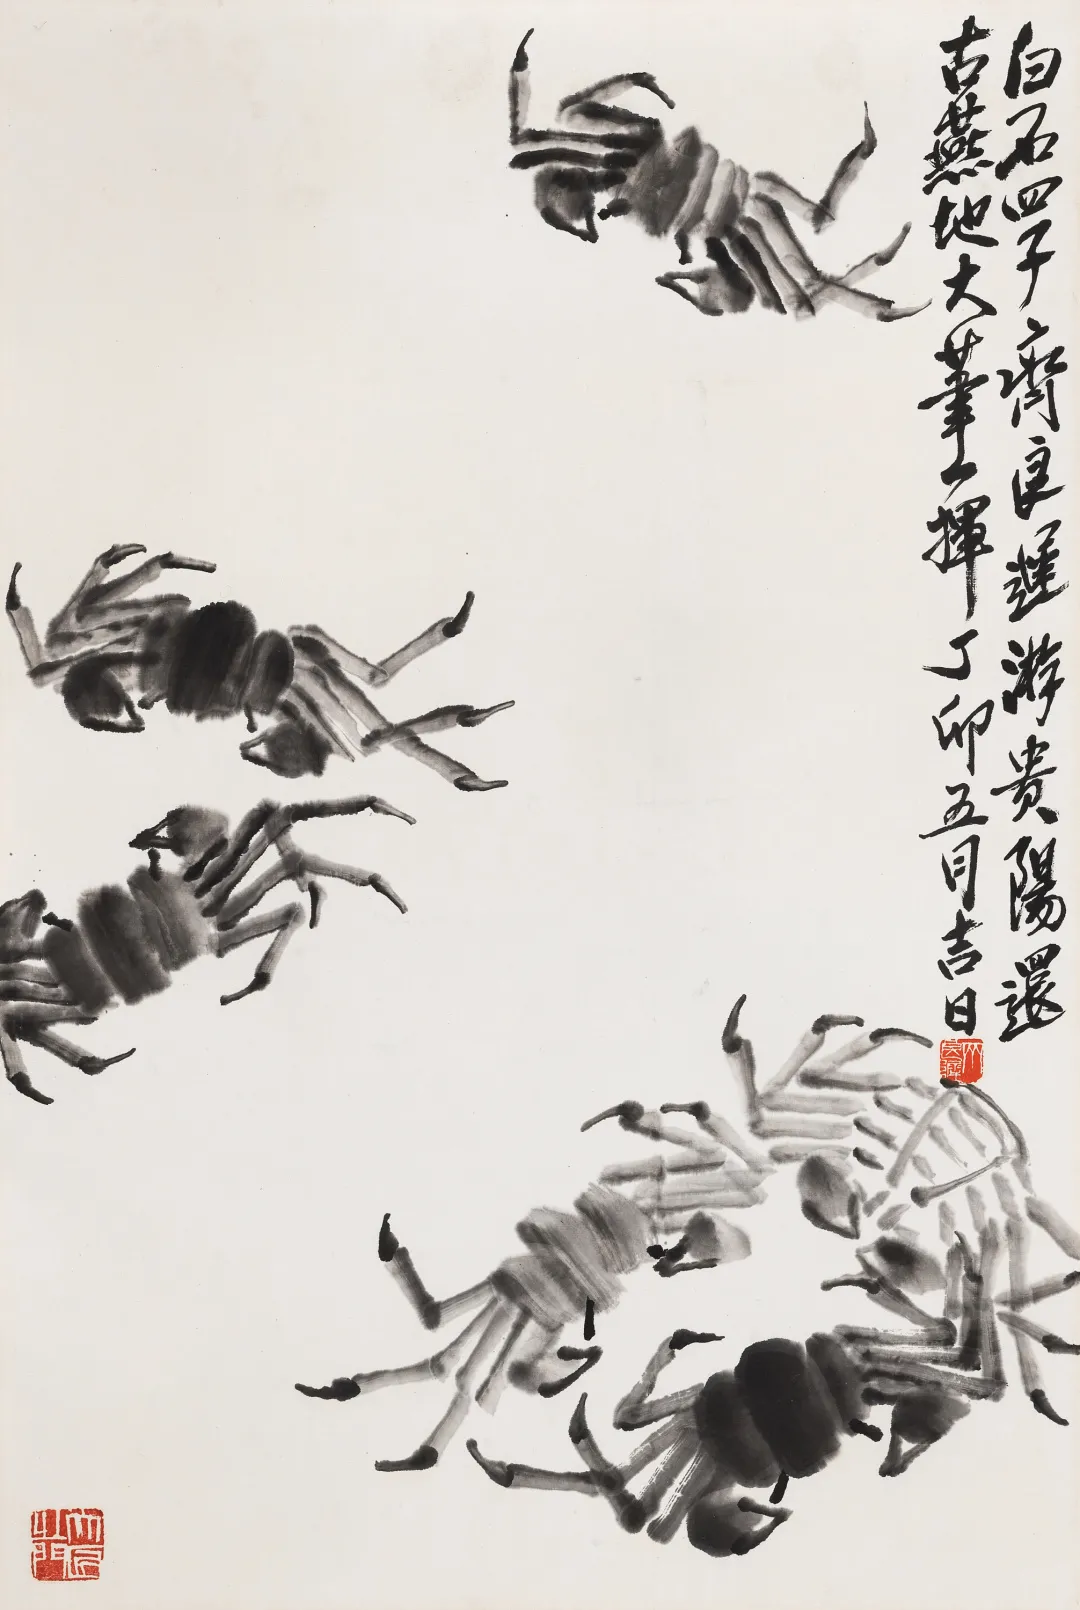 白石四子齊良遲游貴陽還
古燕地大筆一揮丁卯五月吉日
大匠之門